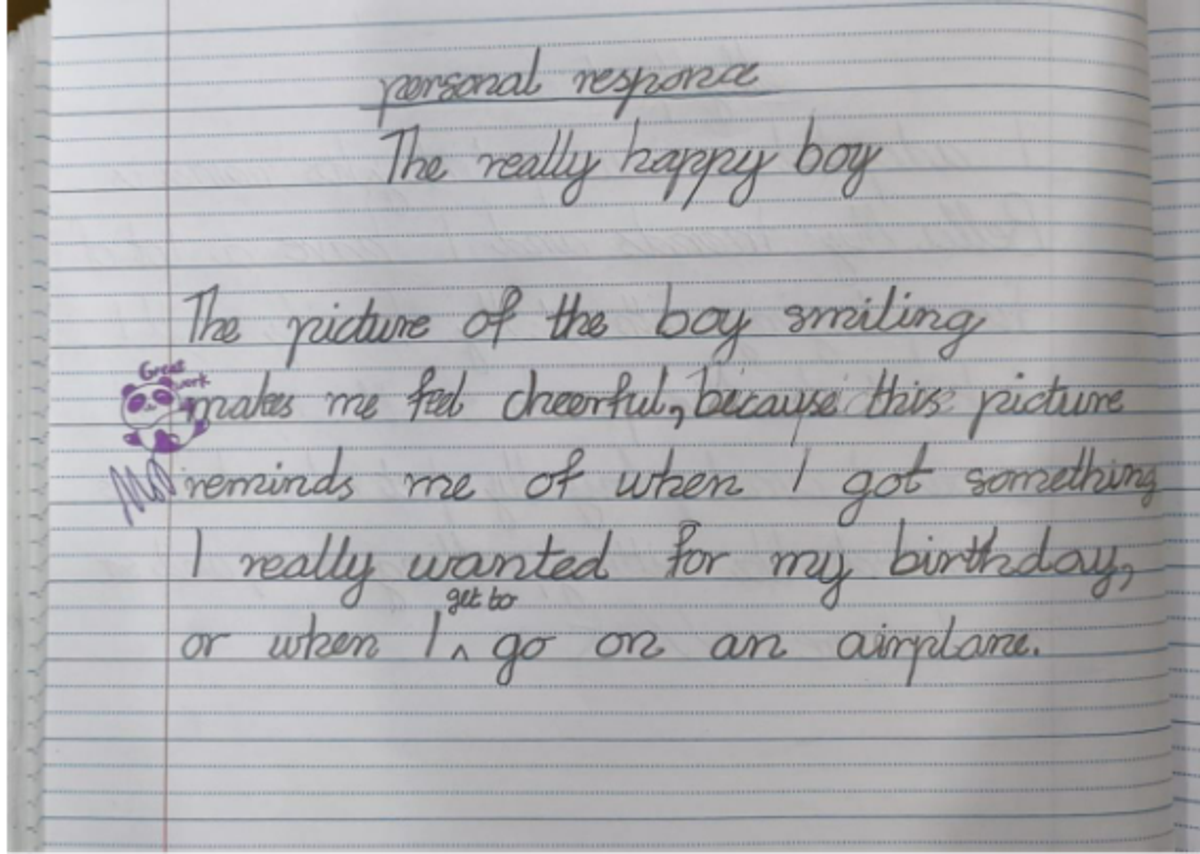 personal responce
The really happy boy
The picture of the boy smiling
Great
work
makes me feel cheerful, because this picture
reminds me of when I got something
I really wanted for my birthday,
get to
or when I ^ go on an airplane.